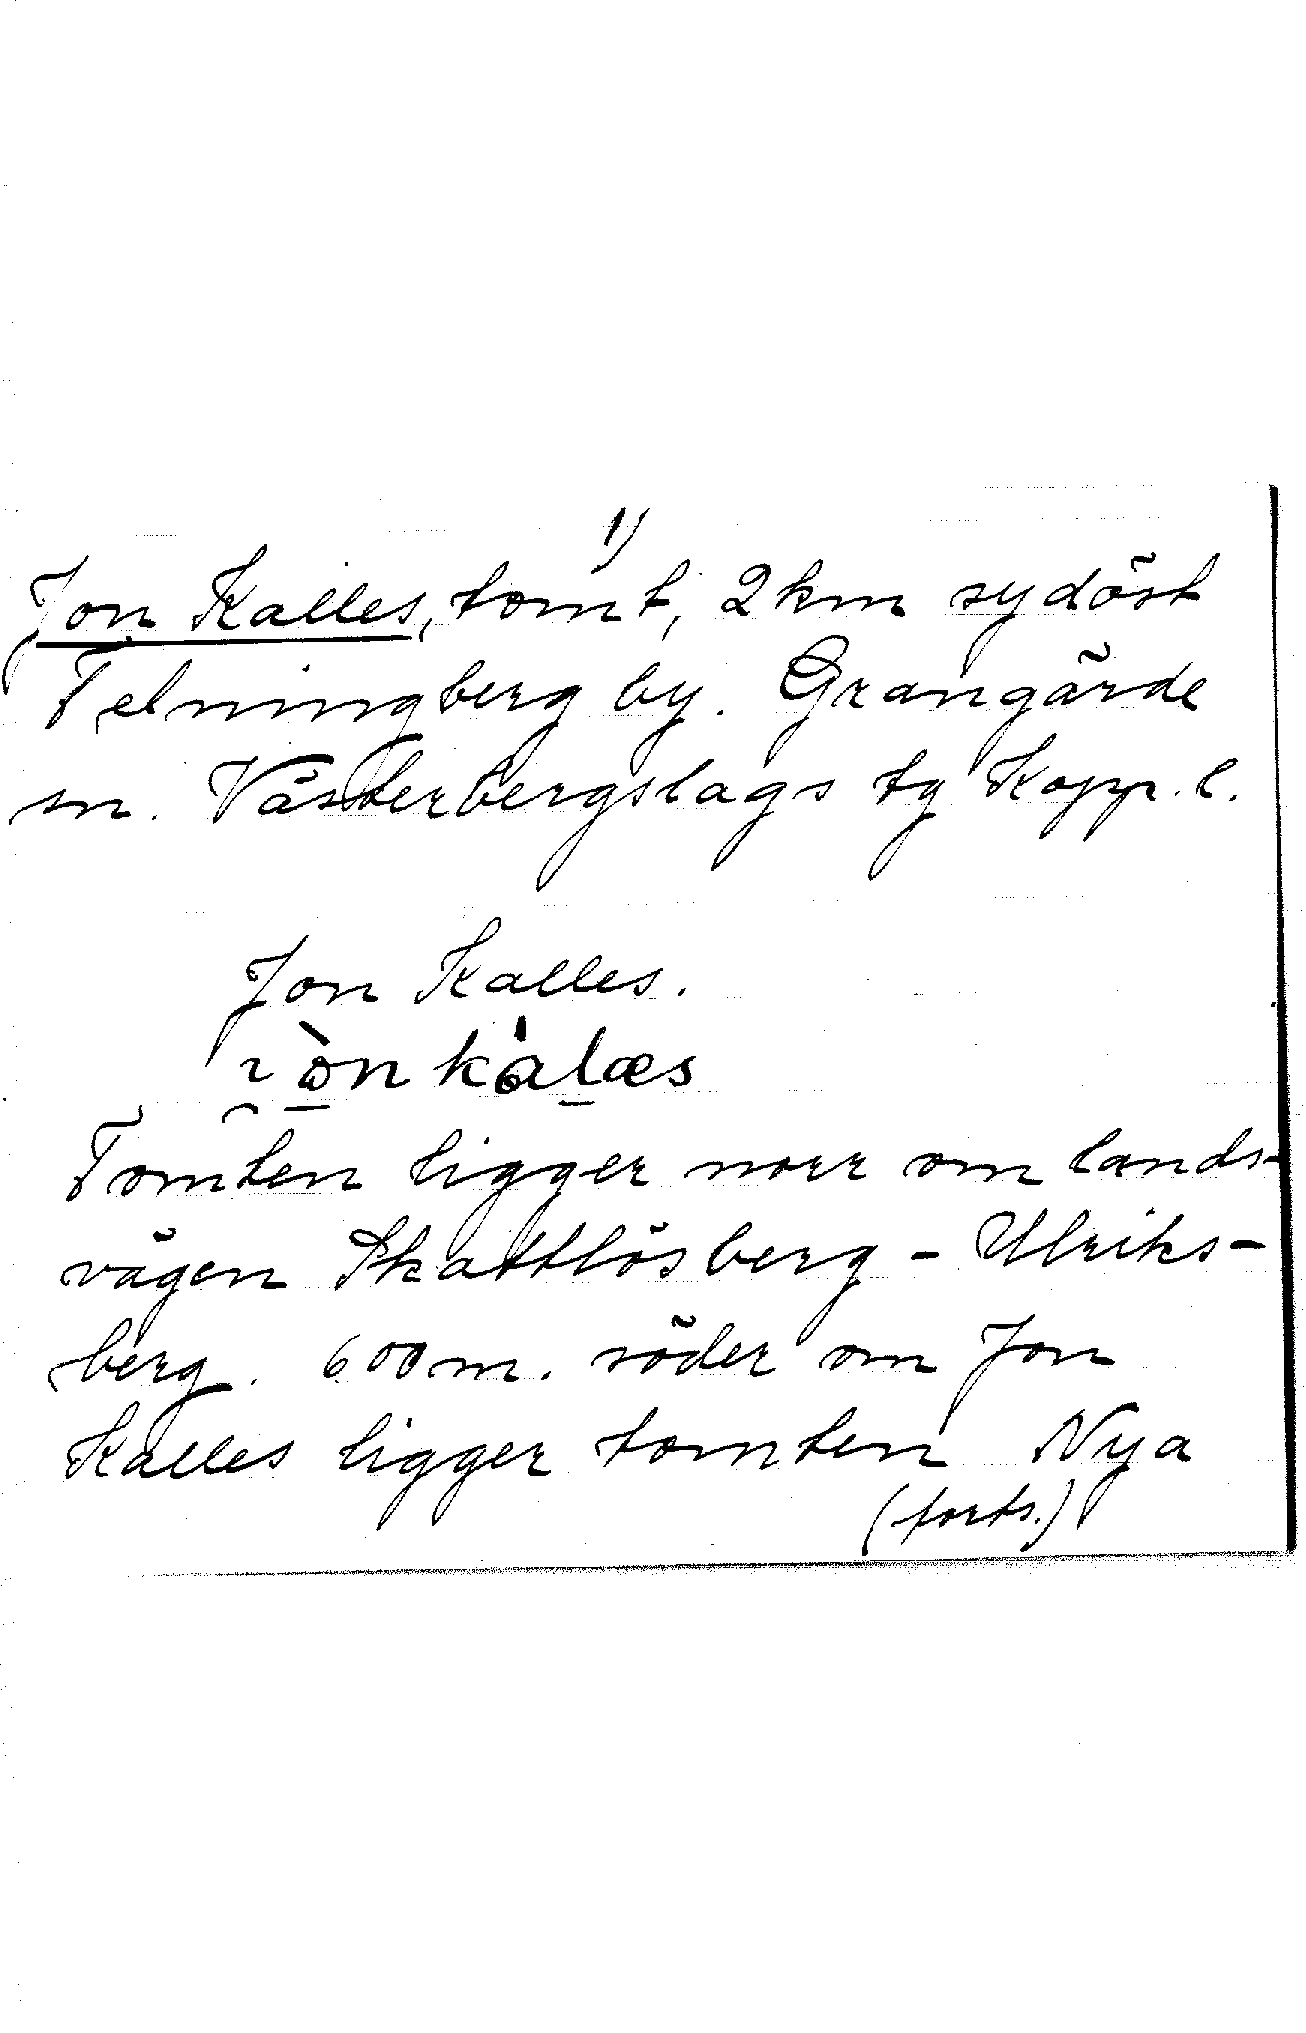 1)
Jon Kalles, tomt, 2 km sydöst
Telningberg by. Grangärde
sn. Västerbergslags tg Kopp. l.
Jon Kalles.
Tomten ligger norr om lands-
vägen Skattlösberg - Ulriks-
berg. 600 m. söder om Jon
Kalles ligger tomten Nya
(forts.)